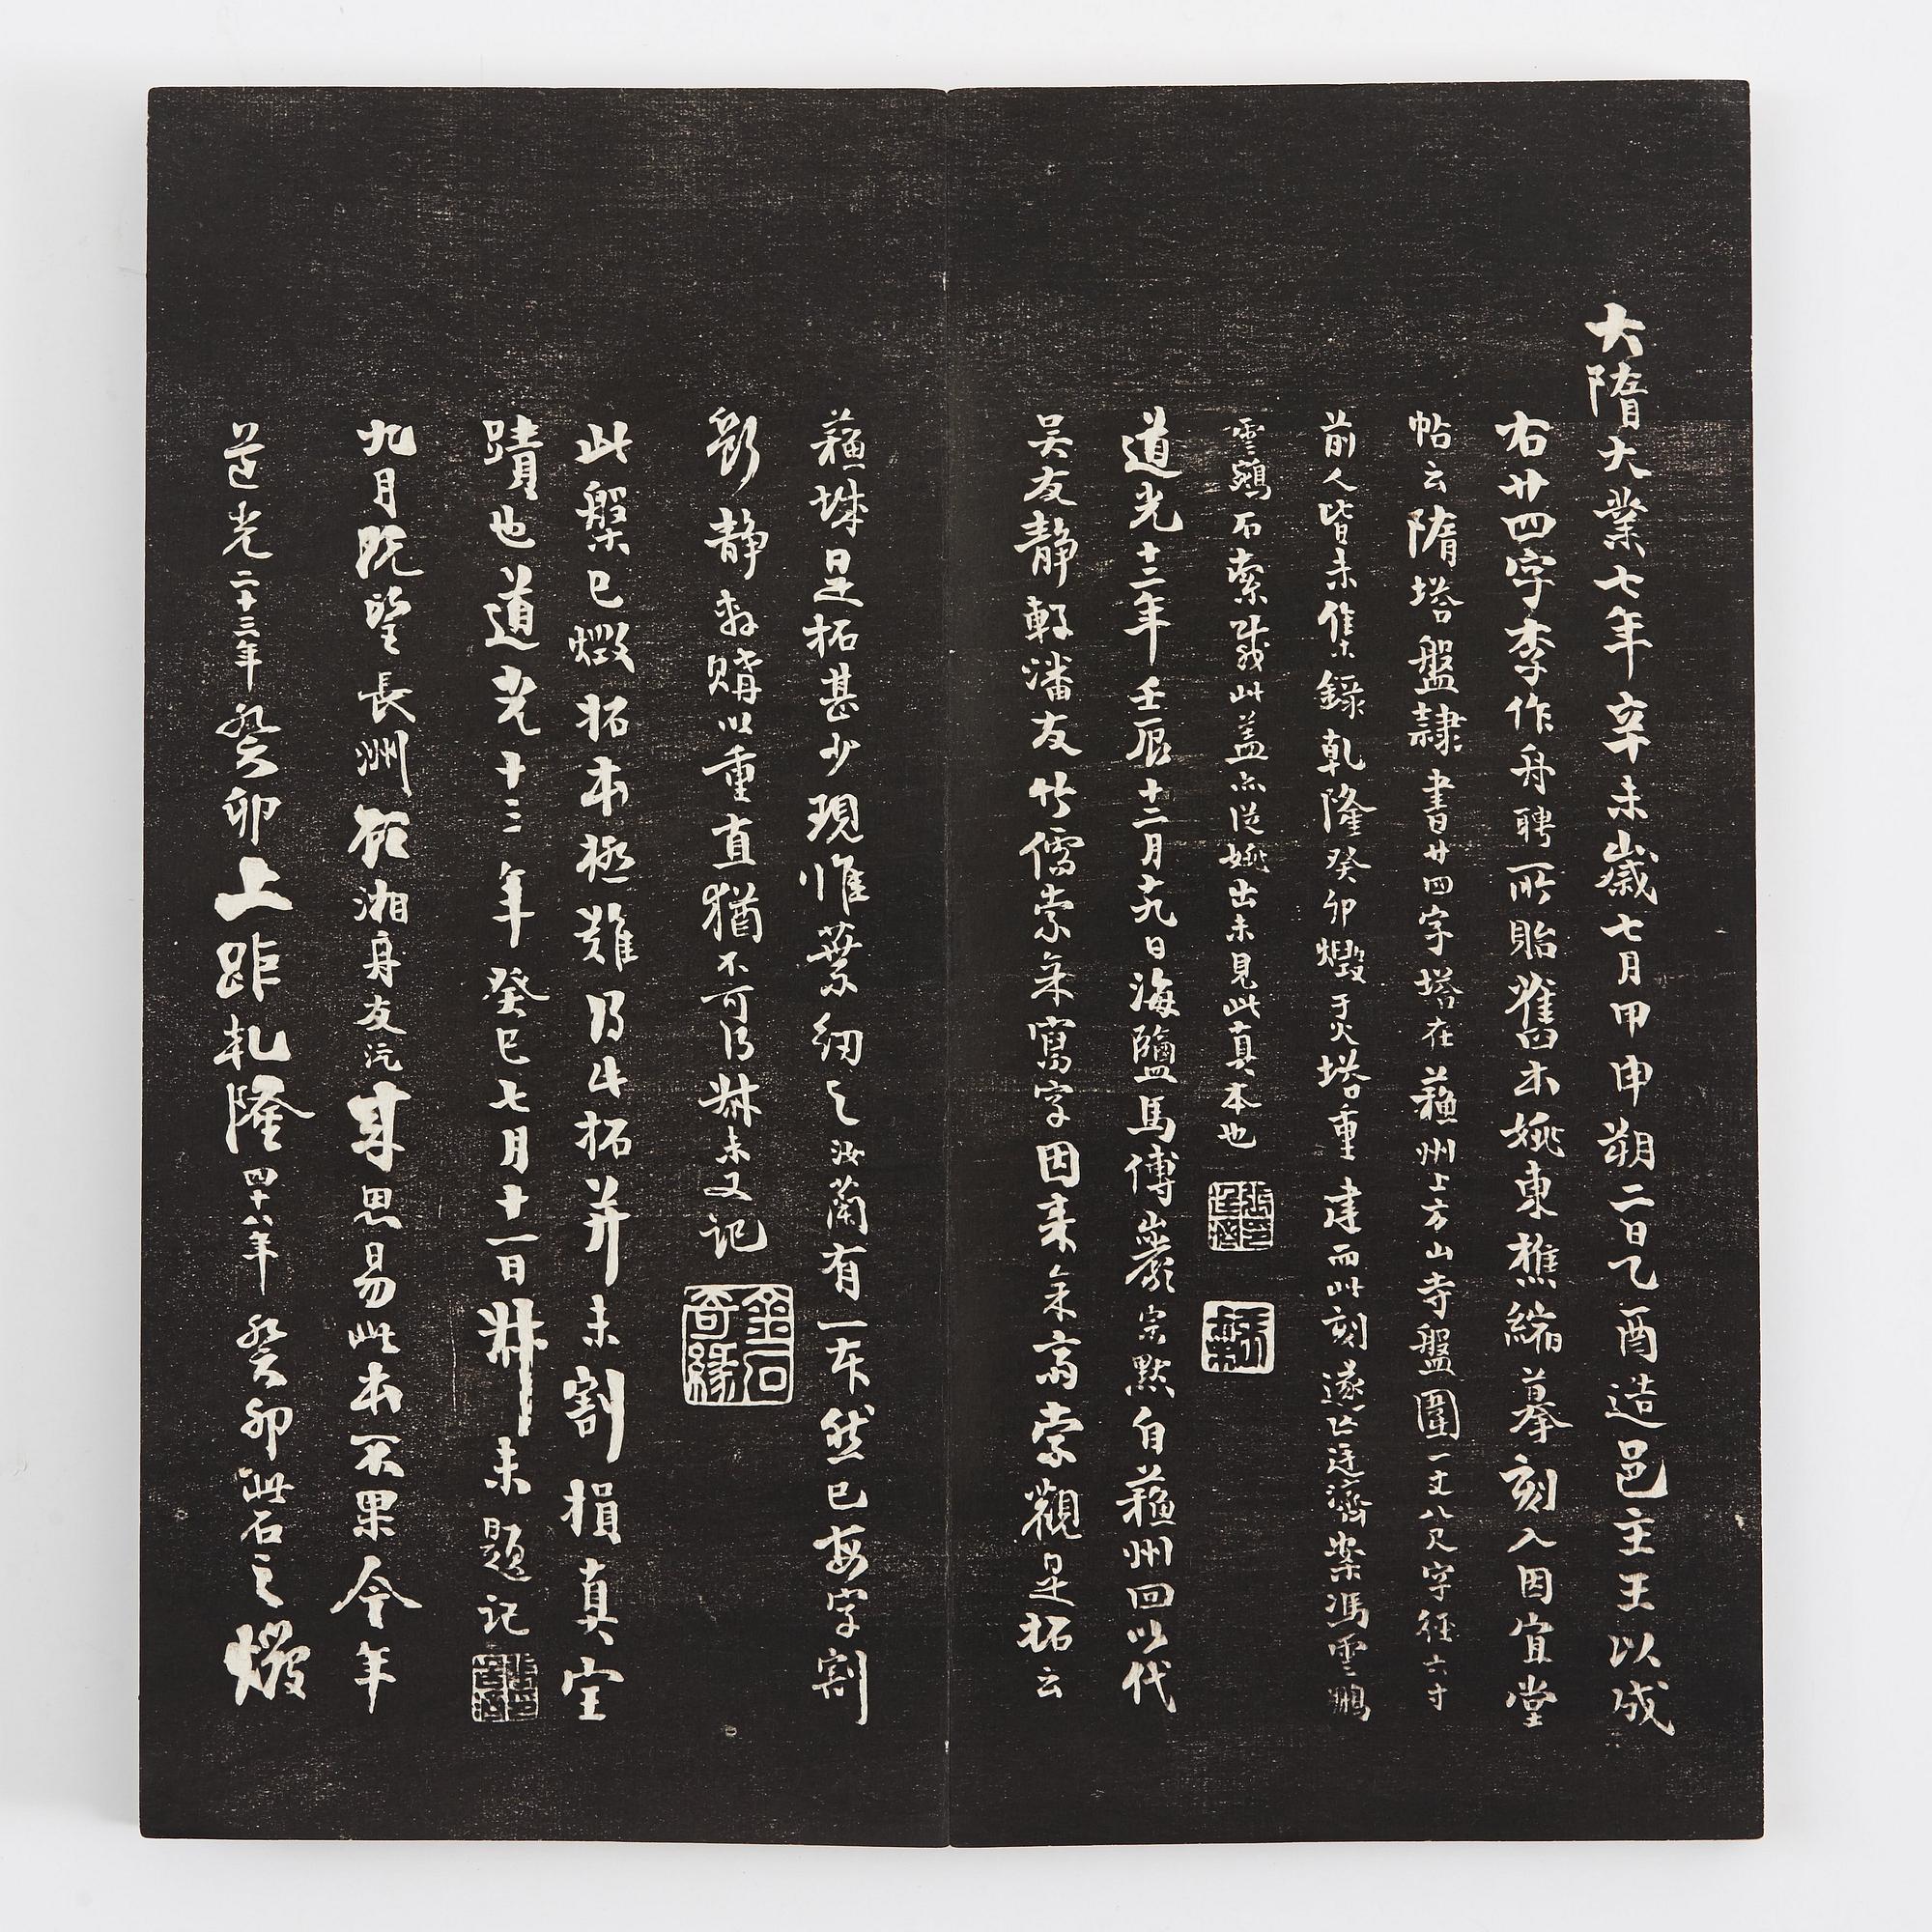 大隋大業七年辛未歲七月甲申朔二日乙酉造邑主王以成
右廿四字李作舟聘所貽舊本姚東樵縮摹刻入因宜堂
帖云隋塔盤隸書廿四字塔在蘇州上方山寺盤圍一丈八尺字徑六寸
前人皆未集錄乾隆癸卯燬于火塔重建而此刻遂亡廷濟案馮雲鵬
雲鵷石索載此蓋亦從姚出未見此真本也
道光十二年壬辰十二月十九日海鹽馬傅巖宗默自蘇州回以代
吴友靜軒潘友竹儒索余寫字因来余齋索觀是拓云
蘇城是拓甚少現惟葉紉之汝蘭有一本然已每字割
靜軒購以重直猶不可得叔未又記
金石奇緣
此槃已燬拓本極難得此拓并未割損真宝
蹟也道光十三年癸巳七月十一日叔未題記
九月既望長洲顧湘舟友沅来思易此本不果今年
道光二十三年癸卯上距乾隆四十八年癸卯此石之燬